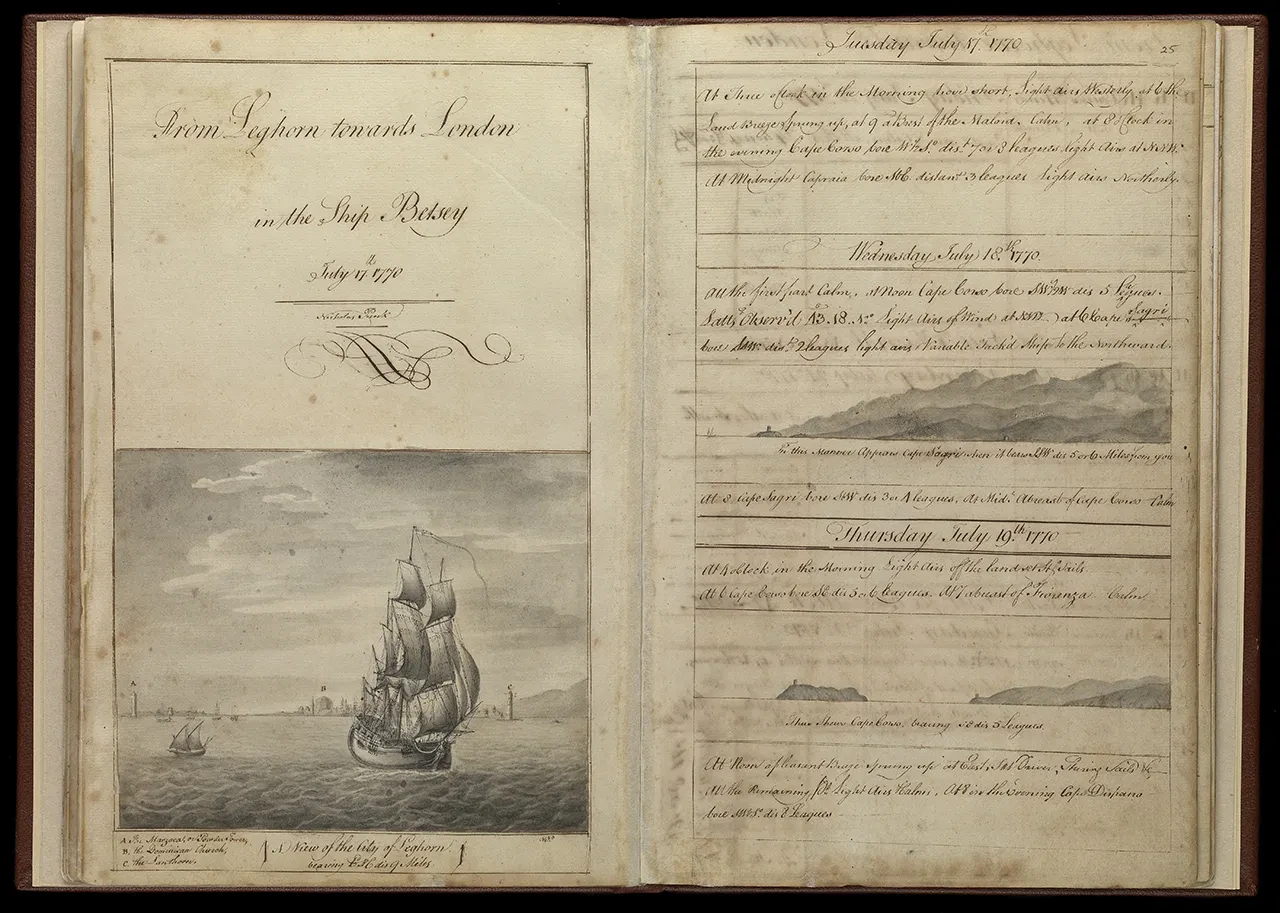 From Leghorn towards London
in the Ship Betsey
July 17th 1770
Nicholas Pocock
A
B
C
A. The Marzocca, or Powder Tower,
B. the Dominican Church,
C. the Lanthorn.
A View of the City of Leghorn
bearing EbN dis 9 Miles
Tuesday July 17th 1770
25
At Three oClock in the Morning hove short, Light airs Westerly, at 6 the
Land Breeze Sprung up, at 9 abrest of the Maloid. Calm, at 8 oClock in
the evening Cape Corso bore WbSo dist 7 or 8 leagues light Airs at NNWt
At Midnight Capraia bore distant 3 leagues light airs Northerly.
Wednesday July 18th 1770.
All the first part Calm, at Noon Cape Corso bore SWbW dis 5 Legues.
Lattd Observ'd 43..18..No Light Airs of Wind at NNW at 6 Cape Sagri
bore SSWt dist 2 leagues light airs Variable Tack'd Ship to the Northward.
In this Manner Appears Cape Sagri when it bears SSW dis 5 or 6 Miles from you
At 8 Cape Sagri bore SSW dis 3 or 4 leagues, At Midt Abreast of Cape Corso Calm
Thursday July 19th 1770
At 4 oClock in the Morning Light Airs off the land set Sails.
At 6 Cape Corso bore SE dis 5 or 6 leagues. At 7 abreast of Fioranza Calm
Thus Shews Cape Corso. bearing SE dis 5 Leagues.
At Noon a pleasant Breeze Sprung up at East, Set Driver, Stuning Sails &c
All the Remaining Pt Light Airs & Calm, At 8 in the Evening Cape Dispano
bore SWbSo dis 8 Leagues